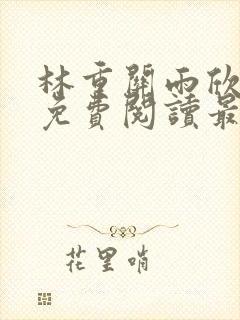 林重關雨欣
免費閱讀最
花里哨